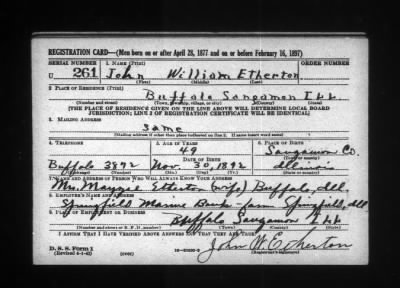 REGISTRATION CARD—(Men born on or after April 28, 1877 and on or before February 16, 1897)
SERIAL NUMBER 1. NAME (Print) ORDER NUMBER
U 261 John William Etherton
(First) (Middle) (Last)
2. PLACE OF RESIDENCE (Print)
Buffalo Sangamon Ill.
(Number and street) (Town, township, village, or city) (County) (State)
[THE PLACE OF RESIDENCE GIVEN ON THE LINE ABOVE WILL DETERMINE LOCAL BOARD
JURISDICTION; LINE 2 OF REGISTRATION CERTIFICATE WILL BE IDENTICAL]
3. MAILING ADDRESS
Same
[Mailing address if other than place indicated on line 2. If same insert word same]
4. TELEPHONE 5. AGE IN YEARS 6. PLACE OF BIRTH
49 Sangamon Co.
DATE OF BIRTH (Town or county)
Buffalo 3892 Nov. 30, 1892 Illinois
(Exchange) (Number) (Mo.) (Day) (Yr.) (State or country)
7. NAME AND ADDRESS OF PERSON WHO WILL ALWAYS KNOW YOUR ADDRESS
Mrs. Etherton (wife) Buffalo, Ill.
8. EMPLOYER'S NAME AND ADDRESS
Springfield Marine Bank Ill.
9. PLACE OF EMPLOYMENT OR BUSINESS
Buffalo Sangamon Ill
(Number and street or R. F. D. number) (Town) (County) (State)
I AFFIRM THAT I HAVE VERIFIED ABOVE ANSWERS AND THAT THEY ARE TRUE.
D. S. S. Form 1
(Revised 4-1-42) John W. Etherton
(Registrant's signature)